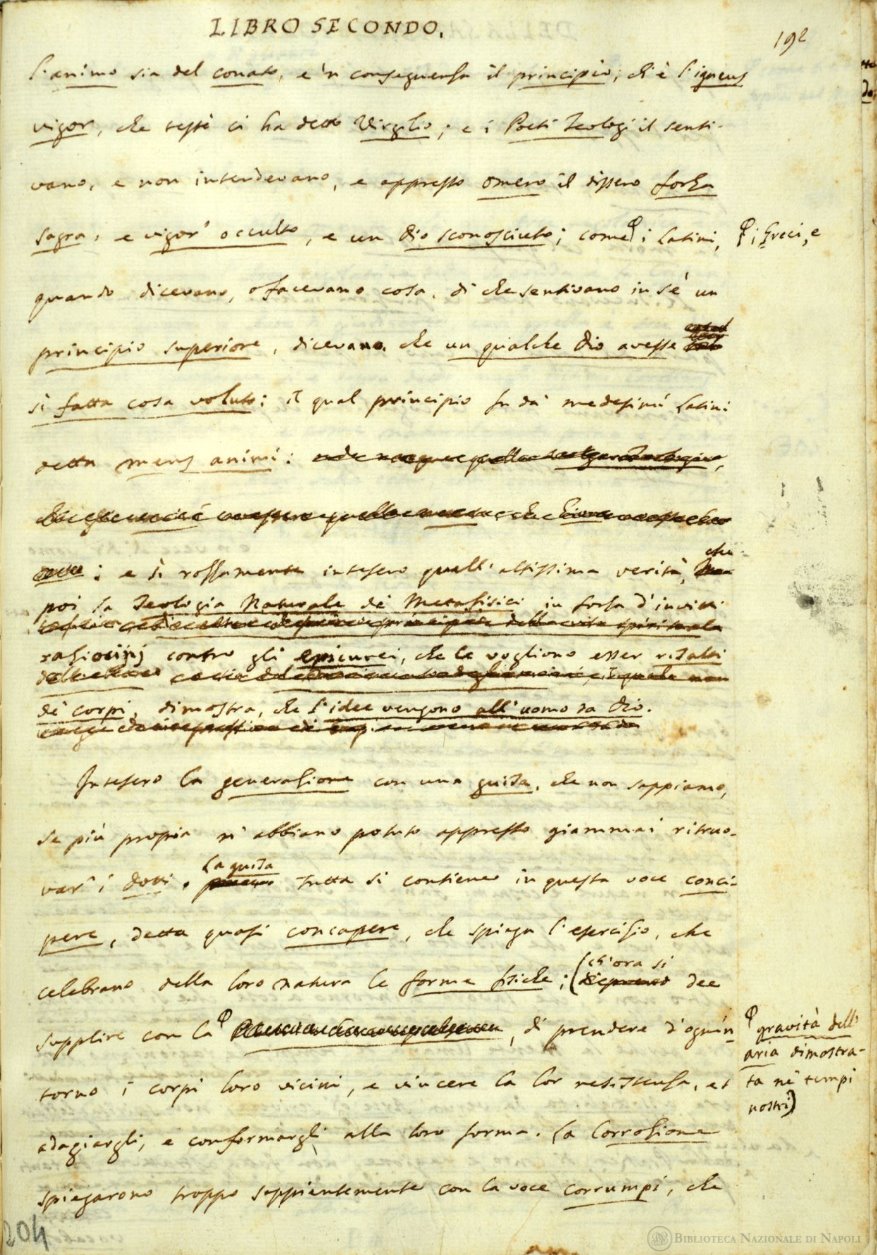 LIBRO SECONDO.
192
l'animo sia del conato, e 'n conseguenza il principio; ch'è l'igneus
vigor, che testè ci ha detto Virgilio; e i Poeti Teologi il senti-
vano, e non intendevano, e appresso Omero il dissero forza
sagra, e vigor' occulto, e un Dio sconosciuto; come i Latini,
i Greci, e
quando dicevano, o facevano cosa, di che sentivano in sé un
principio superiore, dicevano, che un qualche Dio avesse
sì fatta cosa voluto: il qual principio fu da' medesimi Latini
detta mens animi:
: e sì rozzamente intesero quell'altissima verità, che
poi la Teologia Naturale de' Metafisici in forza d'invitti
raziocinj contro gli Epicurei, che le vogliono esser risalti
de' corpi, dimostra, che l'idee vengono all'uomo da Dio.
Intesero la generazione con una guisa, che non sappiamo,
se più propria n' abbiano potuto appresso giammai ritruo-
var' i dotti. La guisa tutta si contiene in questa voce conci-
pere, detta quasi concapere, che spiega l'esercizio, che
celebrano della loro natura le forme fisiche; (ch'ora si dee
supplire con la
gravità dell'
aria dimostra-
ta ne' tempi
nostri)
, di prendere d'ogn'in-
torno i corpi loro vicini, e vincere la lor resistenza, et
adagiargli, e conformargli alla loro forma. La Corrozione
spiegarono troppo sappientemente con la voce corrumpi, che
204
BIBLIOTECA NAZIONALE DI NAPOLI